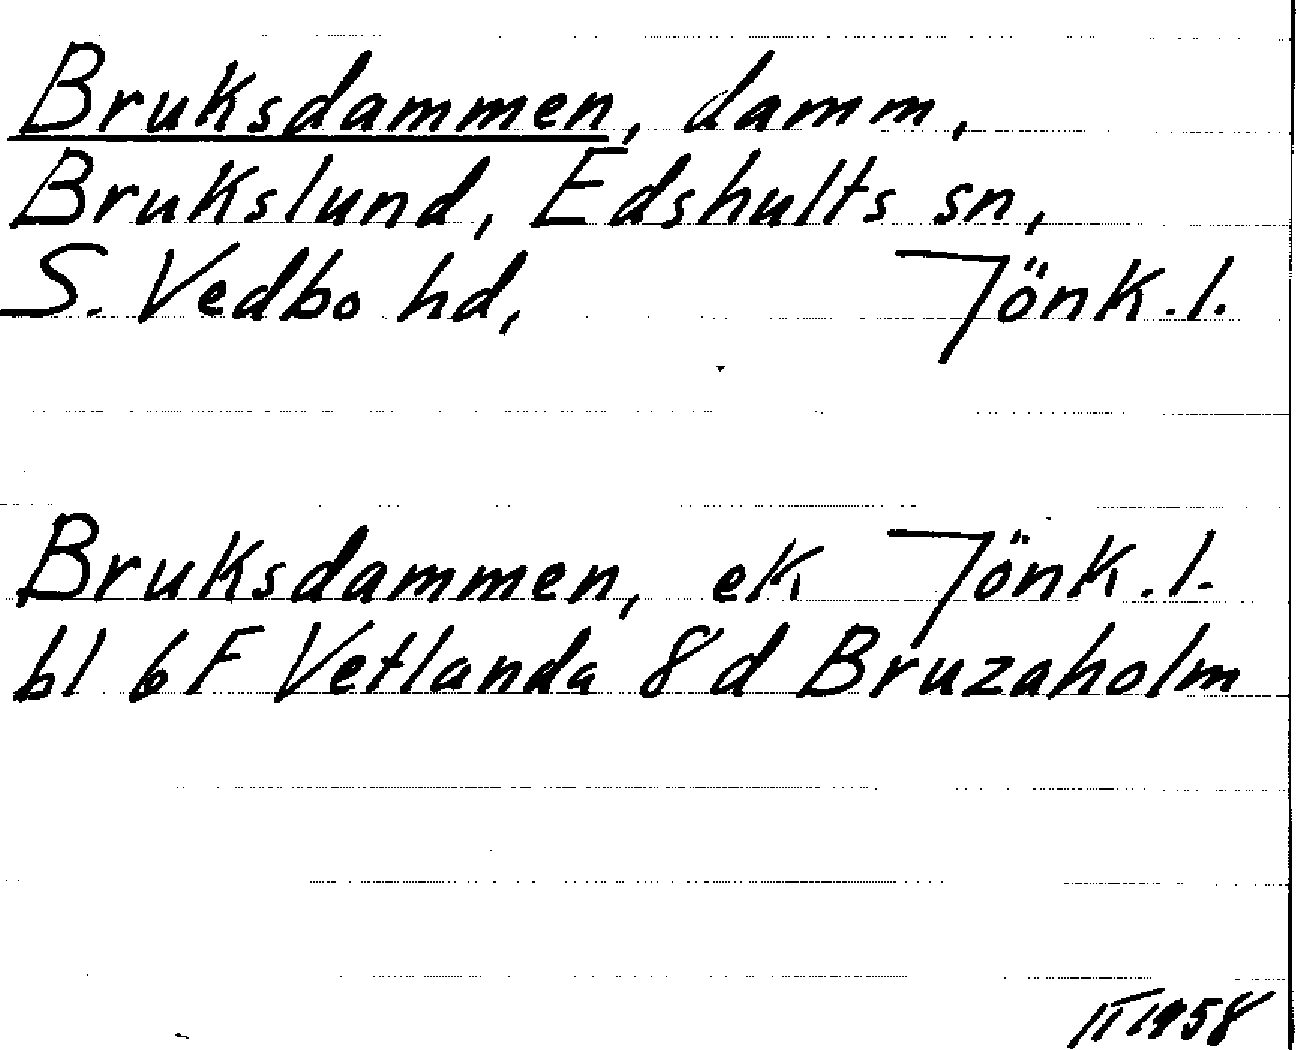 Bruksdammen, damm,
Brukslund, Edshults sn,
S. Vedbo hd, Jönk.l.
Bruksdammen, ek Jönk.l.
bl 6F Vetlanda 8d Bruzaholm
1958